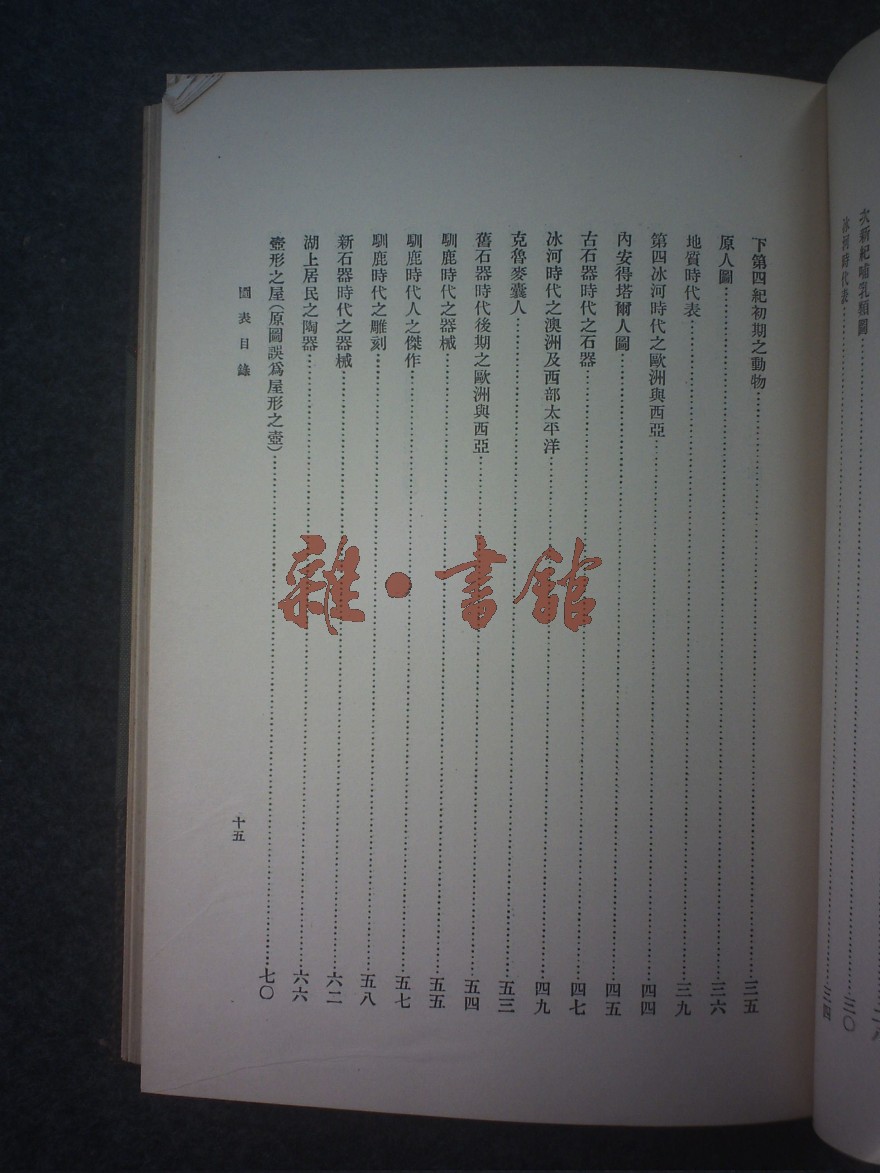 次新紀哺乳類圖
冰河時代表……三四
下第四紀初期之動物……三五
原人圖……三六
地質時代表……三九
第四冰河時代之歐洲與西亞……四四
內安得塔爾人圖……四五
古石器時代之石器……四七
冰河時代之澳洲及西部太平洋……四九
克魯麥囊人……五三
舊石器時代後期之歐洲與西亞……五四
馴鹿時代之器械……五五
馴鹿時代人之傑作……五七
馴鹿時代之雕刻……五八
新石器時代之器械……六二
湖上居民之陶器……六六
壺形之屋(原圖誤爲屋形之壺)……七〇
圖表目錄
十五
雜·書館